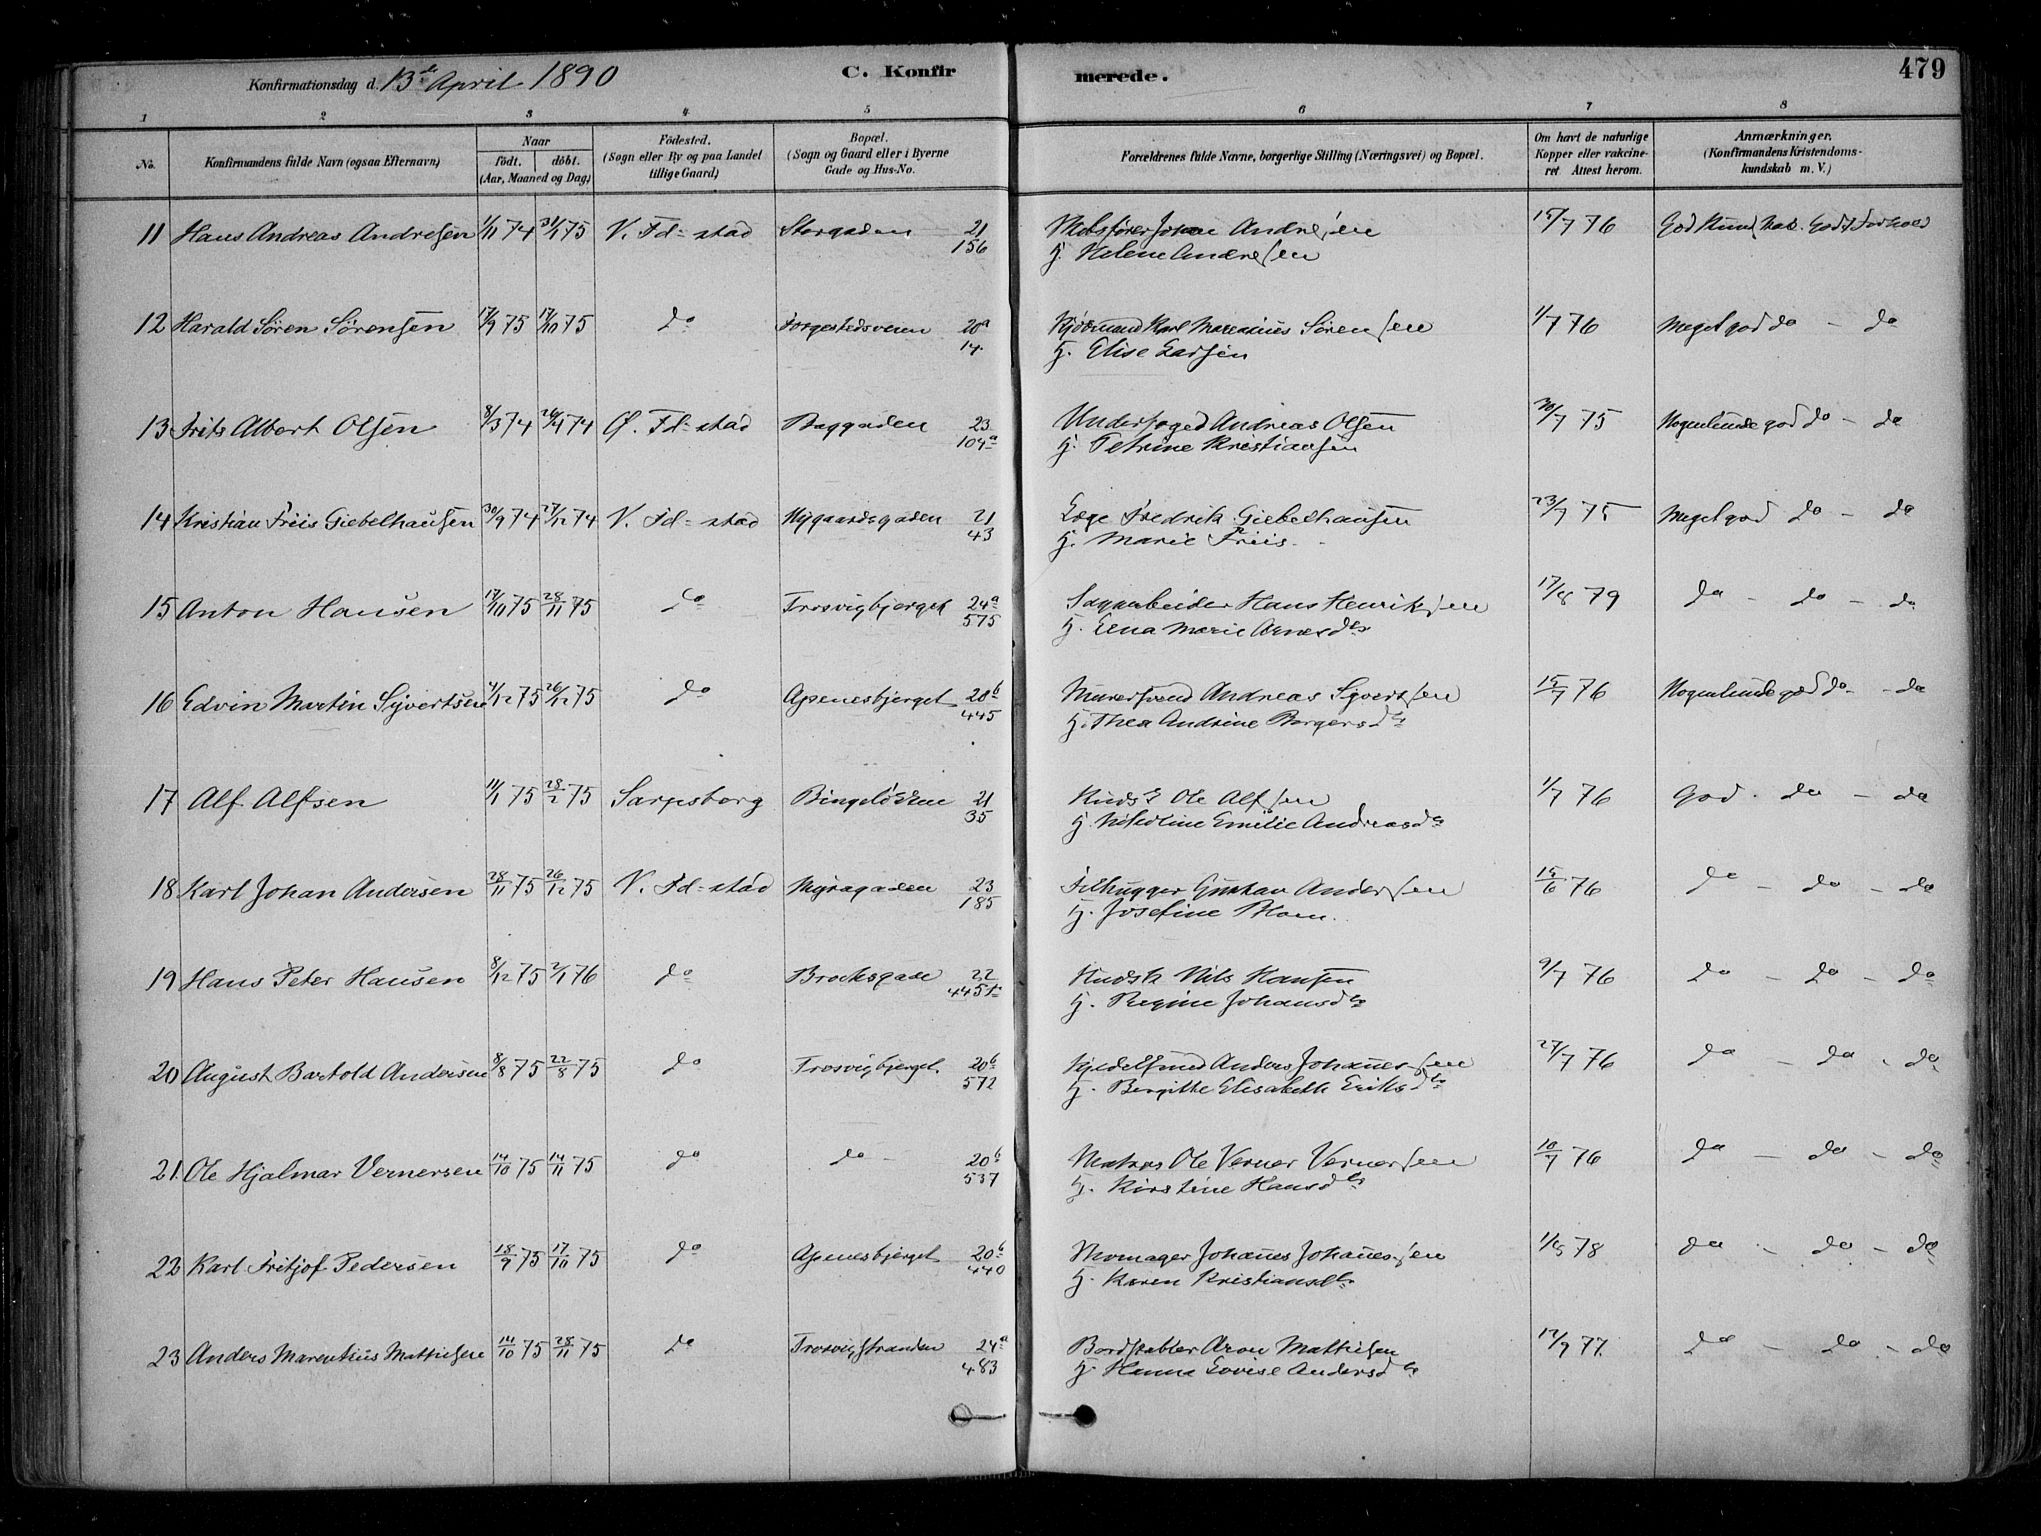 Konfirmationsdag d. 13de April 1890 C. Konfirmerede. 479
1 2 3 4 5 6 7 8
No. Konfirmandens fulde Navn (ogsaa Efternavn) Naar födt. döbt. (Aar, Maaned og Dag) Födested. (Sogn eller By og paa Landet tillige Gaard) Bopæl. (Sogn og Gaard eller i Byerne Gade og Hus-No. Forældrenes fulde Navne, borgerlige Stilling (Næringsvei) og Bopæl. Om havt de naturlige Kopper eller vakcineret Attest herom. Anmærkninger. (Konfirmandens Kristendomskundskab m. V.)
11 Hans Andreas Andresen 1/11 74 31/1 75 V. Fd=stad Storgaden 21 Johan Andresen 15/7 76 God Kundskab. Godt Forhold
156 H. Helene Andresen
12 Harald Sören Sörensen 17/9 75 17/10 75 do 20a Karl Marenius Sörensen 1/7 76 Meget god do - do
14. H. Elise Larsen
13 Frits Albert Olsen 8/3 74 26/4 74 Ø. Fd=stad Baggaden 23 Underfoged Andreas Olsen 30/7 75 Nogenlunde god do - do
104a H. Petrine Kristiansen
14 Kristian Friis Giebelhausen 30/9 74 27/12 74 V. Fd=stad Nygaardsgaden 21 Læge Fredrik Giebelhausen 23/7 75 Meget god do - do
43 H. Marie Friis.
15 Anton Hansen 17/10 75 28/11 75 do Trosvigbjerget 24a Sagarbeider Hans Henriksen 17/8 79 do - do - do
575 H. Lena Marie Arnesdtr
16 Edvin Martin Syvertsen 4/12 75 26/12 75 do Apenesbjerget 20b Murersvend Andreas Syvertsen 15/7 76 Nogenlunde god do - do
445 H. Thea Andrine Borgersdtr
17 Alf Alfsen 11/1 75 28/2 75 Sarpsborg Bingelökken 21 Kudsk Ole Alfsen 1/7 76 God do - do
35 H. Nikoline Emilie Andreasdtr
18 Karl Johan Andersen 28/11 75 26/12 75 V. Fd=stad Myragaden 23 Filhugger Gustav Andersen 15/6 76 do - do - do
185 H. Josefine Blom.
19 Hans Peter Hansen 8/12 75 2/1 76 do Brochsgade 22 Kudsk Nils Hansen 9/7 76 do - do - do
H. Regine Johansdtr
20 August Bartold Andersen 8/8 75 22/8 75 do Trosvigbjerget. 20b Anders Johannessen 27/7 76 do - do - do
572 H. Bergitte Elisabeth Eriksdtr
21. Ole Hjalmar Vernersen 14/10 75 14/11 75 do do - 20b Matros Ole Verner Vernersen 10/7 76 do - do - do
537 H. Kirstine Hansdtr
22 Karl Fritjof Pedersen 18/9 75 17/10 75 do Apenesbjerget 20b Skomager Johannes Johannessen 78 do - do - do
440 H. Karen Kristiansdtr
23 Anders Marentius Mattisen 14/10 75 28/11 75 do Trosvigstranden 24a Bordstabler Aron Mattisen 12/9 77. do - do - do
483 H. Hanna Lovise Andersdtr